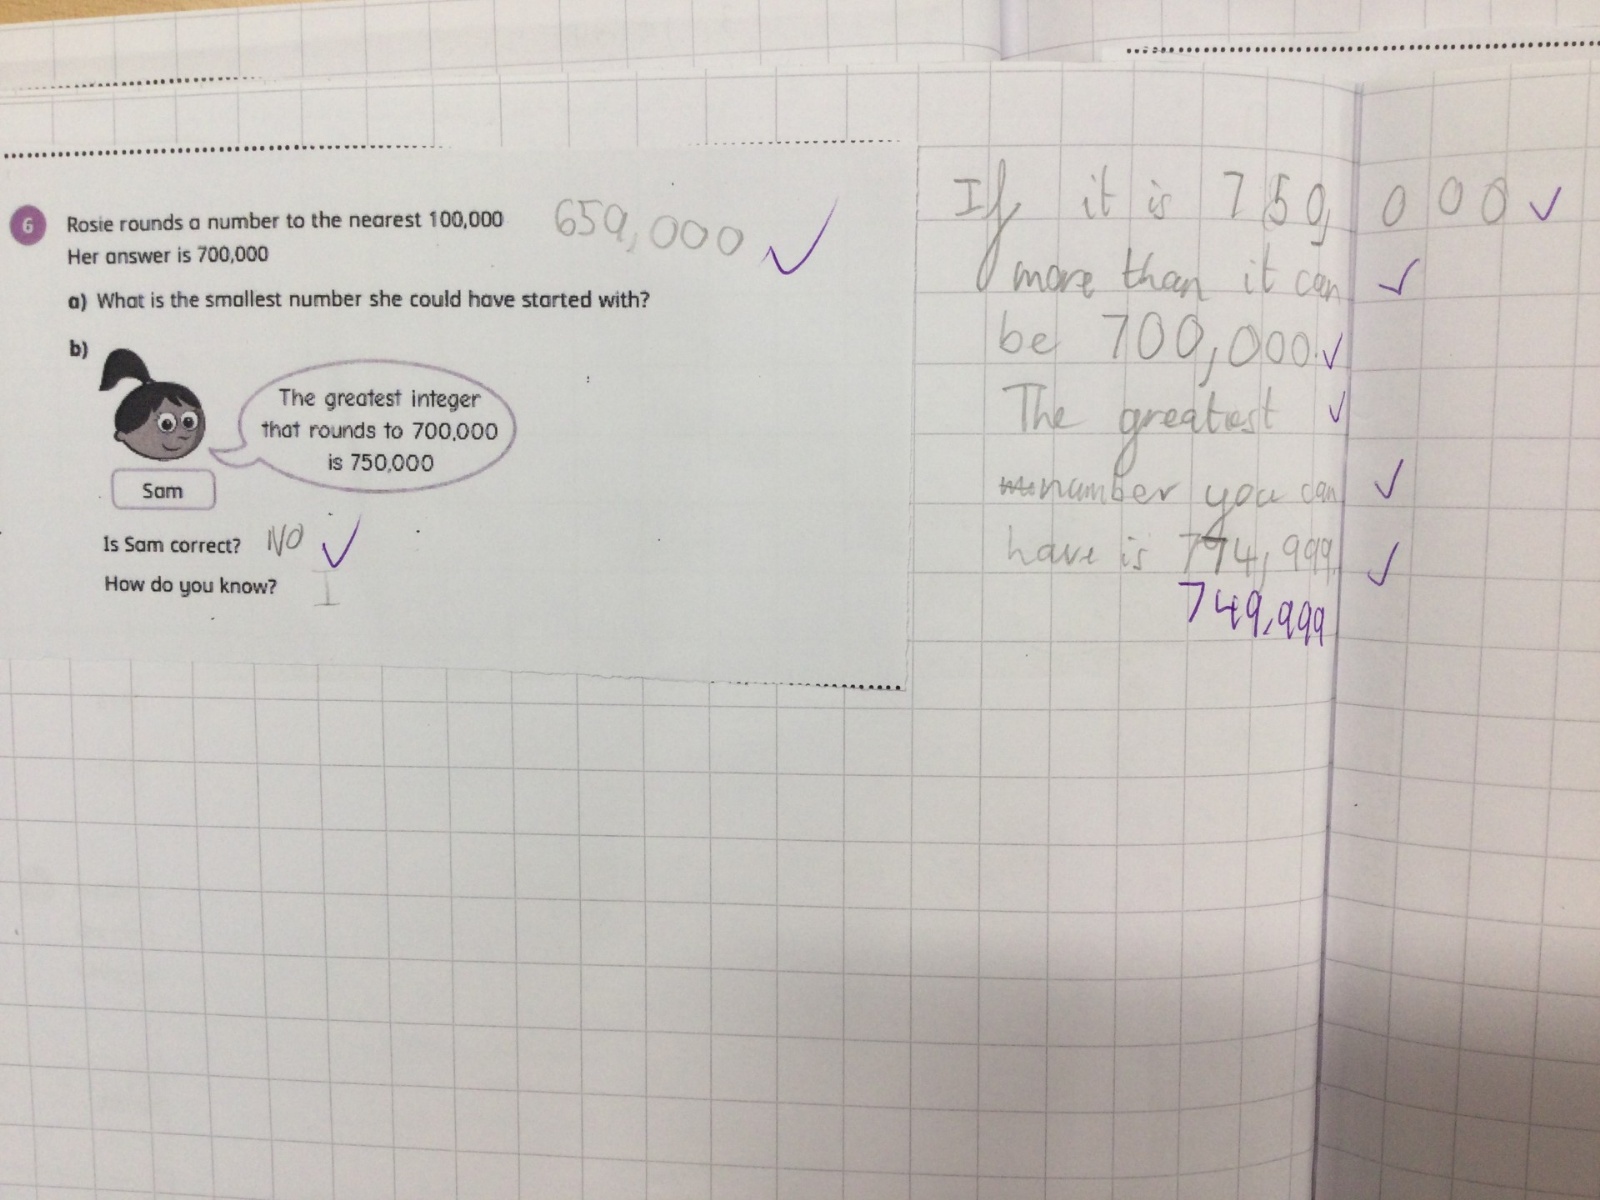 6 Rosie rounds a number to the nearest 100,000 659,000
Her answer is 700,000
a) What is the smallest number she could have started with?
b)
The greatest integer
that rounds to 700,000
is 750,000
Sam
Is Sam correct? NO
How do you know? I
If it is 750,000
more than it can
be 700,000.
The greatest
number you can
have is 794,999
749,999